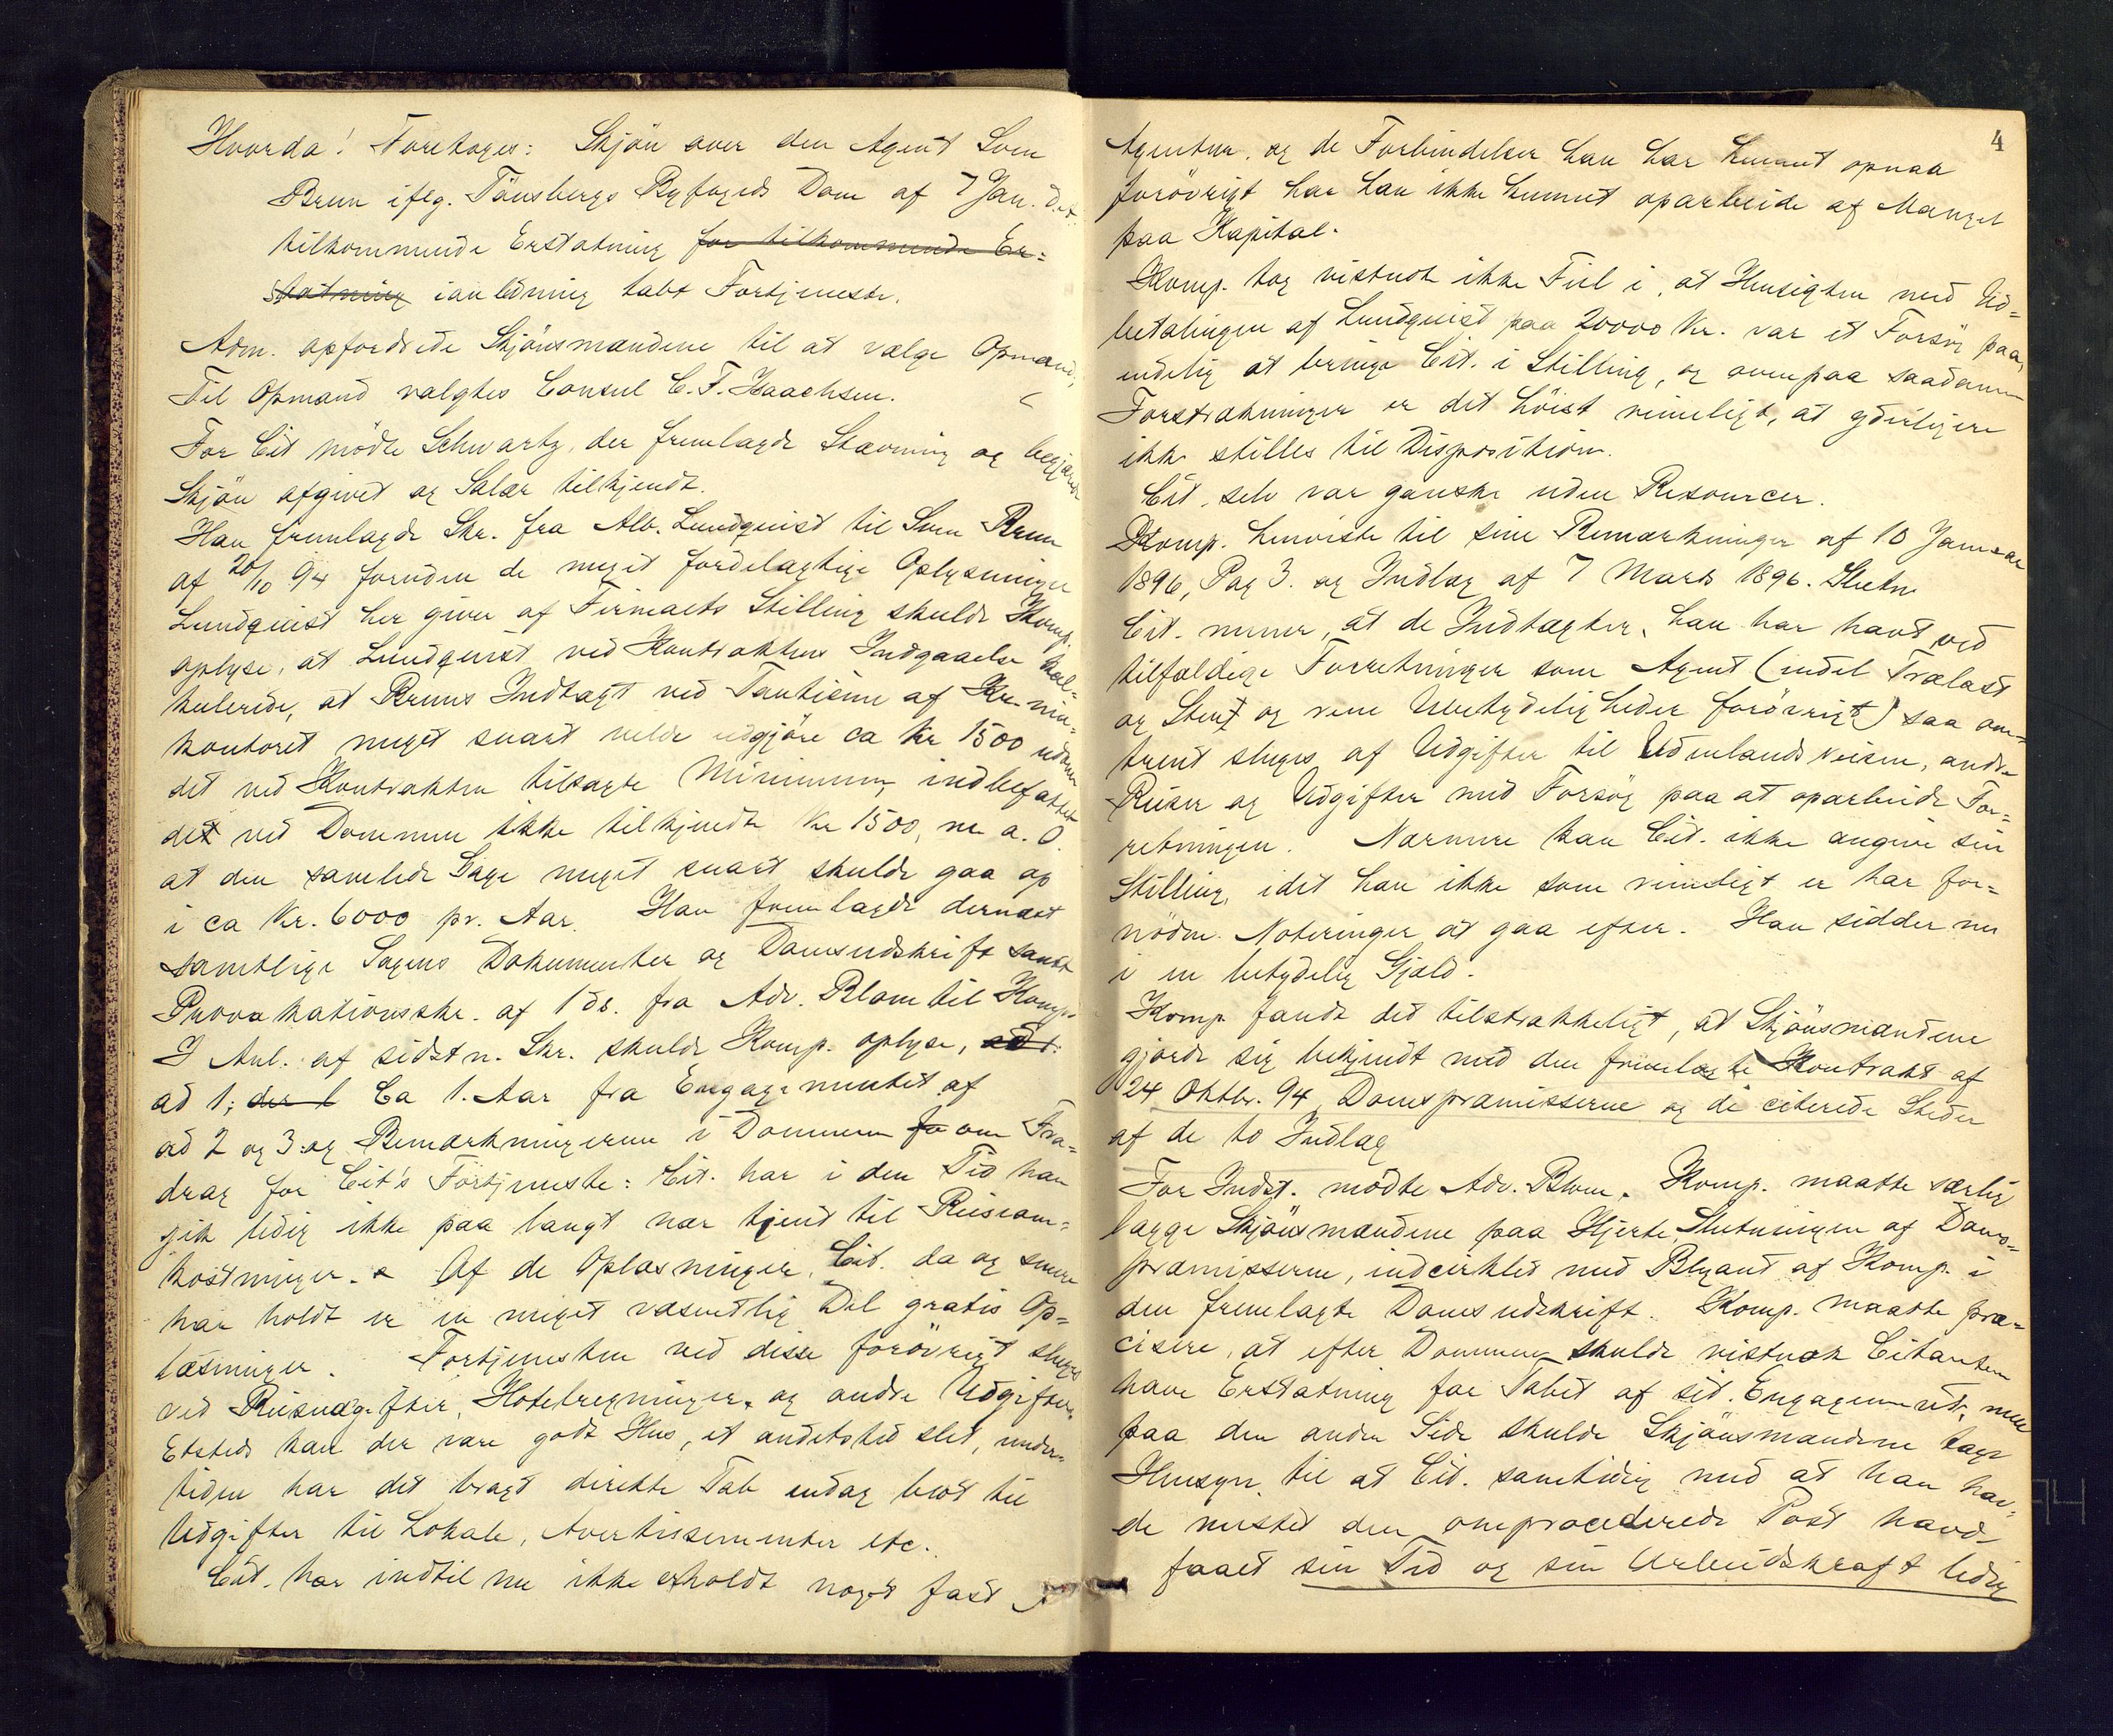 Hvorda! Foretoges: Skjön over den Agent Sven
Brun iflg. Tönsbergs Byfogeds Dom af 7 Jan. d.A.
tilkommende Erstatning for tilkommende Er=
statning ianledning tabt Fortjeneste.
Adm. opfordrede Skjönsmændene til at vælge Opmand,
Til Opmand valgtes Consul C. F. Isaachsen.
For Cit mödte Schwartz, der fremlagde Stævning og begjærede
Skjön afgivet og Salær tilkjendt.
Han fremlagde Skr. fra Alb. Lundquist til Sven Brun
af 20/10 94 foruden de meget fordelagtige Oplysninger
Lundquist her giver af Firmaets Stilling skulde Komp.
oplyse, at Lundquist ved Kontraktens Indgaaelse kal=
kulerede, at Bruns Indtægt ved Tantieme af Kr.nia=
kontoret meget snart vilde udgjöre ca Kr 1500 udenom
det ved Kontrakten tilsagte Minimum, indbefattet
det ved Dommen ikke tilkjendte Kr 1500, m. a. O.
at den samlede Gage meget snart skulde gaa op
i ca Kr. 6000 pr. Aar. Han fremlagde dernæst
samtlige Sagens Dokumenter og Domsudskrift samt
Provokationsskr. af 1 ds. fra Adv. Blom til Komp.
I Anl. af sidstn. Skr. skulde Komp. oplyse, at:
ad 1; der l Ca 1. Aar fra Engagementet af
ad 2 og 3: og Bemærkningerne i Dommen fo om Fra=
drag for Cit's Fortjeneste: Cit. har i den Tid han
gik ledig ikke paa langt nær tjent til Reiseom=
kostninger. Af de Oplæsninger, Cit. da og senere
har holdt er en meget væsentlig Del gratis Op=
læsninger. Fortjenesten ved disse forövrigt sluges
ved Reiseudgifter, Hotelregninger og andre Udgifter.
Etsteds kan der være godt Hus, et andetsted slet, under=
tiden har det bragt direkte Tab endog blot til
Udgifter til Lokale, Avertissementer etc.
Cit. har indtil nu ikke erholdt noget fast
4
Agentur, og de Forbindelser han har kunnet opnaa
forövrigt har han ikke kunnet oparbeide af Mangel
paa Kapital.
Komp. tog vistnok ikke Feil i, at Hensigten med Ud=
betalingen af Lundquist paa 20000 Kr. var et Forsög paa,
endelig at bringe Cit. i Stilling, og ovenpaa saadanne
Forstrækninger er det höist rimeligt, at yderligere
ikke stilles til Disposition.
Cit. selv var ganske uden Resourcer.
Komp. henviste til sine Bemærkninger af 10 Januar
1896, Pag 3. og Indlæg af 7 Marts 1896. Slutn.
Cit. mener, at de Indtægter, han har havt ved
tilfældige Forretninger som Agent (endel Trælast
og Sten og rene Ubetydeligheder forövrigt) saa om=
trent sluges af Udgifter til Udenlandsreisen, andre
Reiser og Udgifter med Forsög paa at oparbeide For=
retningen. Nærmere kan Cit. ikke angive sin
Stilling, idet han ikke som rimeligt er har for=
nödne Noteringer at gaa efter. Han sidder nu
i en betydelig Gjæld.
Komp fandt det tilstrækkeligt, at Skjönsmændene
gjorde sig bekjendt med den fremlagte Kontrakt af
24 Oktbr. 94, Domspræmisserne og de citerede Steder
af de to Indlæg
For Indst. mödte Adv. Blom. Komp. maatte særlig
lægge Skjönsmændene paa Hjerte Slutningen af Doms=
præmisserne, indcirklet med Blyant af Komp. i
den fremlagte Domsudskrift. Komp. maatte præ=
cisere, at efter Dommen skulde vistnok Citanten
have Erstatning for Tabet af sit Engagement, men
paa den anden Side skulde Skjönsmændene tage
Hensyn til at Cit. samtidig med at han hav=
de mistet den omprocederede Post havde
faaet sin Tid og sin Arbeidskraft ledig